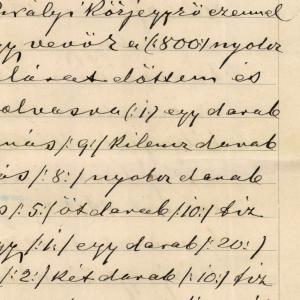 királyi közjegyző ezennel
vevő (:800:) nyolcz
és
olvasva (:1:) egy darab
más (:9:) kilencz darab
(:8:) nyolcz darab
(:5:) öt darab (:10:) tiz
(:1:) egy darab (:20:)
(:2:) két darab (:10:) tiz